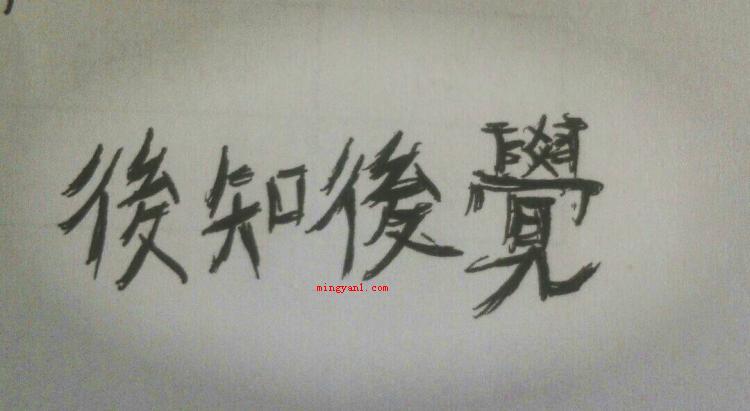 後知後覺
mingyan1.com